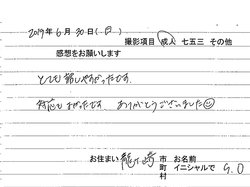 2019年6月30日(日)
撮影項目 成人 七五三 その他
感想をお願いします
とても話しやすかったです。
対応もよかったです。ありがとうございました
お住まい 龍ヶ崎 市 お名前
町 イニシャルで G.O
村